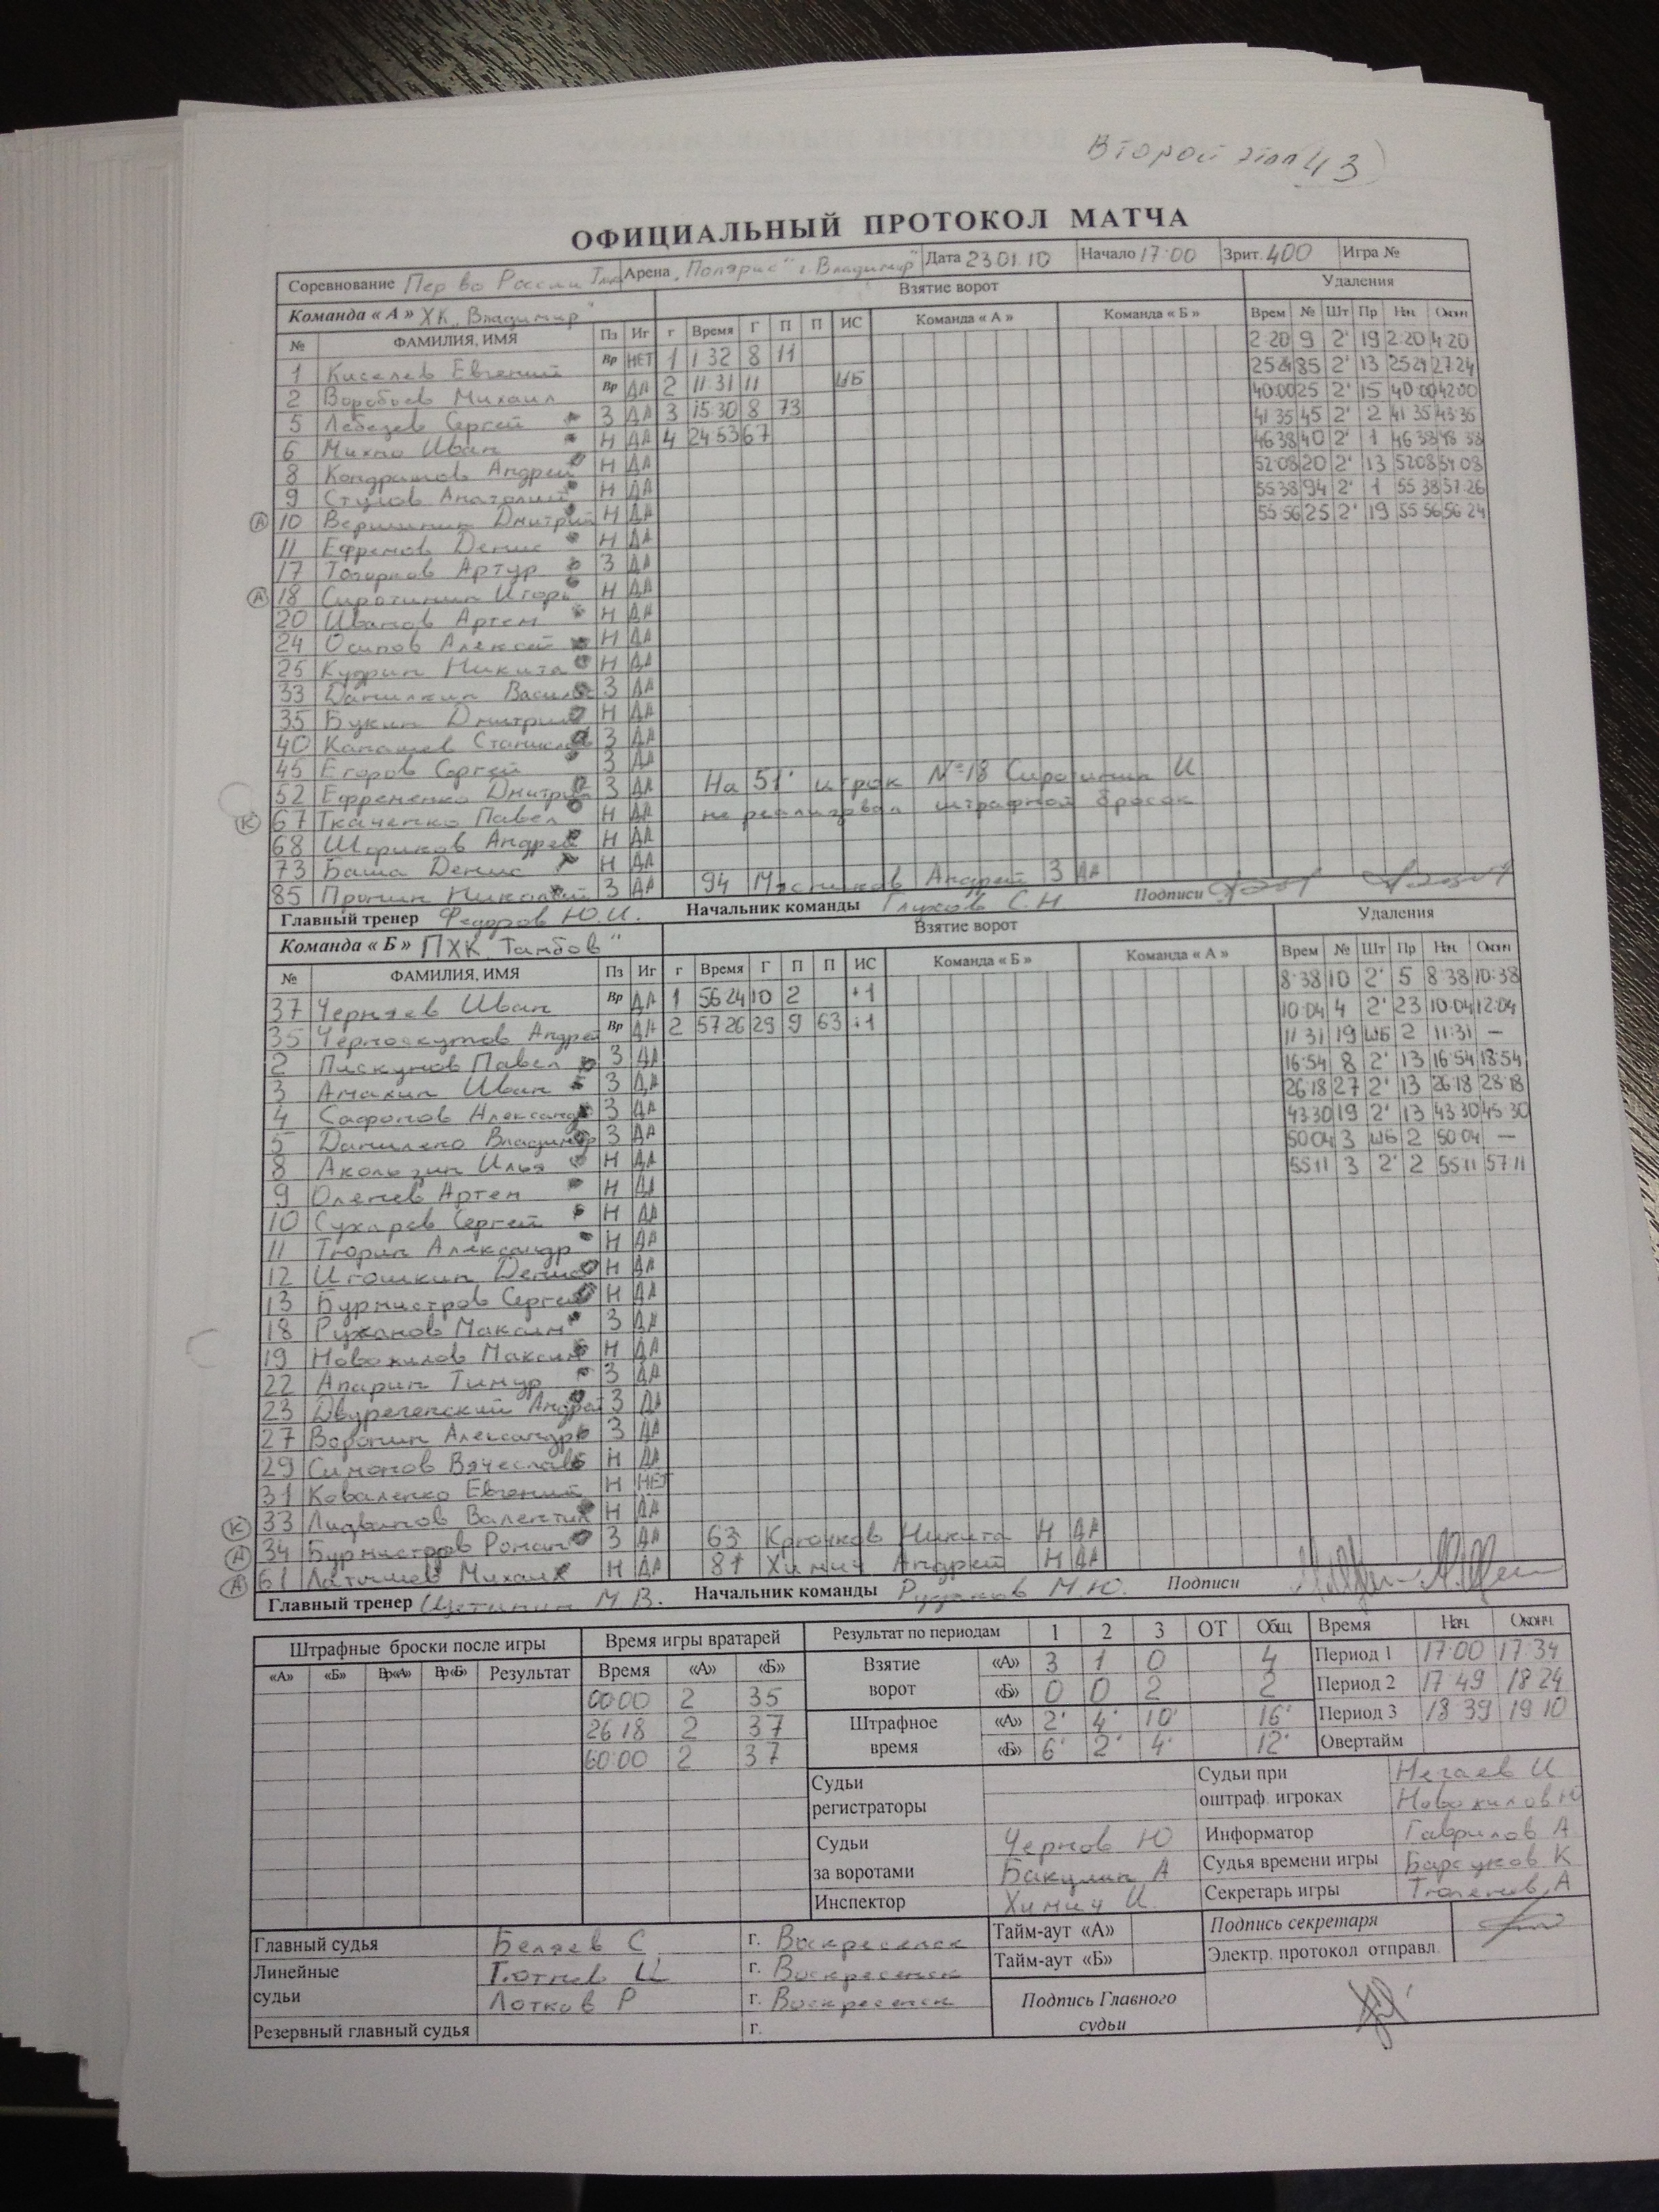 Второй этап 43
ОФИЦИАЛЬНЫЙ ПРОТОКОЛ МАТЧА
Соревнование Пер во России Арена "Полярис" г. Владимир Дата 23 01 10 Начало 17:00 Зрит. 400 Игра №
Команда « А » ХК "Владимир" Взятие ворот Удаления
№ ФАМИЛИЯ, ИМЯ Пз Иг г Время Г П П ИС Команда « А » Команда « Б » Врем № Шт Пр Нач. Оконч
1 Киселев Евгений Вр НЕТ 1 1 32 8 11 2:20 9 2' 19 2:20 4:20
2 Воробьев Михаил Вр ДА 2 11:31 11 ШБ 25 24 85 2' 13 25 24 27:24
5 Лебедев Сергей З ДА 3 15:30 8 73 40:00 25 2' 15 40:00 42:00
6 Михно Иван Н ДА 4 24 53 67 41 35 45 2' 2 41 35 43:35
8 Кондрашов Андрей Н ДА 46 38 40 2' 1 46 38 48 38
9 Стулов Анатолий Н ДА 52:08 20 2' 13 52:08 54 08
А 10 Вершинин Дмитрий Н ДА 55 38 94 2' 1 55 38 57:26
11 Ефремов Денис Н ДА 55:56 25 2' 19 55 56 56 24
17 Артур З ДА
А 18 Сиротинин Игорь Н ДА
20 Иванов Артем Н ДА
24 Осипов Алексей Н ДА
25 Кудрин Никита Н ДА
33 Данилкин Василий З ДА
35 Букин Дмитрий Н ДА
40 Капашев Станислав З ДА
45 Егоров Сергей З ДА
52 Ефременко Дмитрий З ДА На 51' игрок №18 Сиротинин И
К 67 Ткаченко Павел Н ДА не реализовал штрафной бросок
68 Шориков Андрей Н ДА
73 Баша Денис Н ДА
85 Пронин Николай З ДА 94 Мясников Андрей З ДА
Главный тренер Федоров Ю.И. Начальник команды Глухов С.Н. Подписи
Команда « Б » ПХК "Тамбов" Взятие ворот Удаления
№ ФАМИЛИЯ, ИМЯ Пз Иг г Время Г П П ИС Команда « Б » Команда « А » Врем № Шт Пр Нач. Оконч
37 Черняев Иван Вр ДА 1 56 24 10 2 +1 8:38 10 2' 5 8:38 10:38
35 Черноскутов Андрей Вр ДА 2 57 26 29 9 63 +1 10:04 4 2' 23 10:04 12:04
2 Пискунов Павел З ДА 11 31 19 ШБ 2 11:31 —
3 Амахин Иван З ДА 16:54 8 2' 13 16:54 18:54
4 Сафонов Александр З ДА 26:18 27 2' 13 26:18 28:18
5 Данилено Владимир З ДА 43:30 19 2' 13 43 30 45 30
8 Акользин Илья Н ДА 50 04 3 ШБ 2 50 04 —
9 Оленев Артем Н ДА 55 11 3 2' 2 55 11 57 11
10 Сухарев Сергей Н ДА
11 Тюрин Александр Н ДА
12 Игошкин Денис Н ДА
13 Бурмистров Сергей Н ДА
18 Ружанов Максим З ДА
19 Новожилов Максим Н ДА
22 Апарин Тимур З ДА
23 Двуреченский Андрей З ДА
27 Воронин Александр З ДА
29 Симонов Вячеслав Н ДА
31 Коваленко Евгений Н НЕТ
К 33 Лидванов Валентин Н ДА
А 34 Бурмистров Роман З ДА 63 Крючков Никита Н ДА
А 61 Латышев Михаил Н ДА 81 Химич Андрей Н ДА
Главный тренер Щетинин М.В. Начальник команды Рудаков М.Ю. Подписи
Штрафные броски после игры Время игры вратарей Результат по периодам 1 2 3 ОТ Общ. Время Нач. Оконч.
«А» «Б» Вр«А» Вр«Б» Результат Время «А» «Б» Взятие ворот «А» 3 1 0 4 Период 1 17:00 17:34
00:00 2 35 «Б» 0 0 2 2 Период 2 17 49 18 24
26 18 2 37 Штрафное время «А» 2' 4' 10' 16' Период 3 18 39 19 10
60:00 2 37 «Б» 6' 2' 4' 12' Овертайм
Судьи регистраторы Судьи при оштраф. игроках Нечаев И
Новожилов Н
Судьи за воротами Чернов Ю Информатор Гаврилов А
Бакулин А Судья времени игры Барсуков К
Инспектор Химич И. Секретарь игры Тюленев А
Главный судья Беляев С г. Воскресенск Тайм-аут «А» Подпись секретаря
Линейные судьи Тютнев И г. Воскресенск Тайм-аут «Б» Электр. протокол отправл.
Лотков Р г. Воскресенск Подпись Главного судьи
Резервный главный судья г.